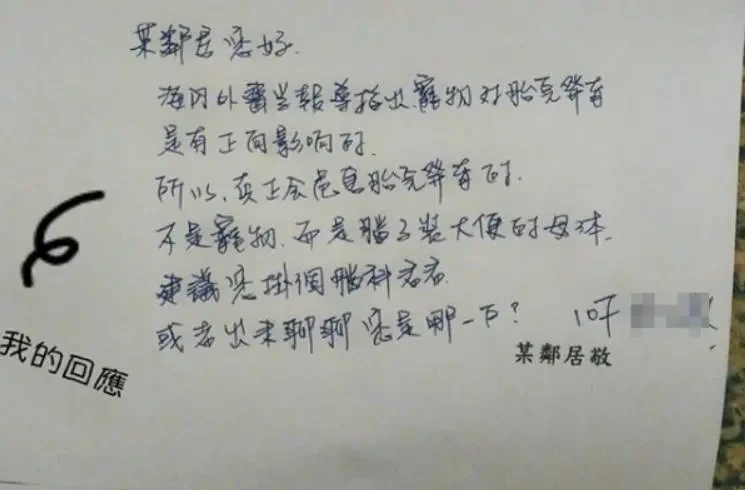 某鄰居您好.
海內外醫學報導指出寵物对胎兒發育
是有正向影响的.
所以,真正会危害胎兒發育的.
不是寵物.而是腦子裝大便的母体.
建議您掛個腦科看看
或者出来聊聊您是哪一下? 10F
某鄰居敬
我的回應